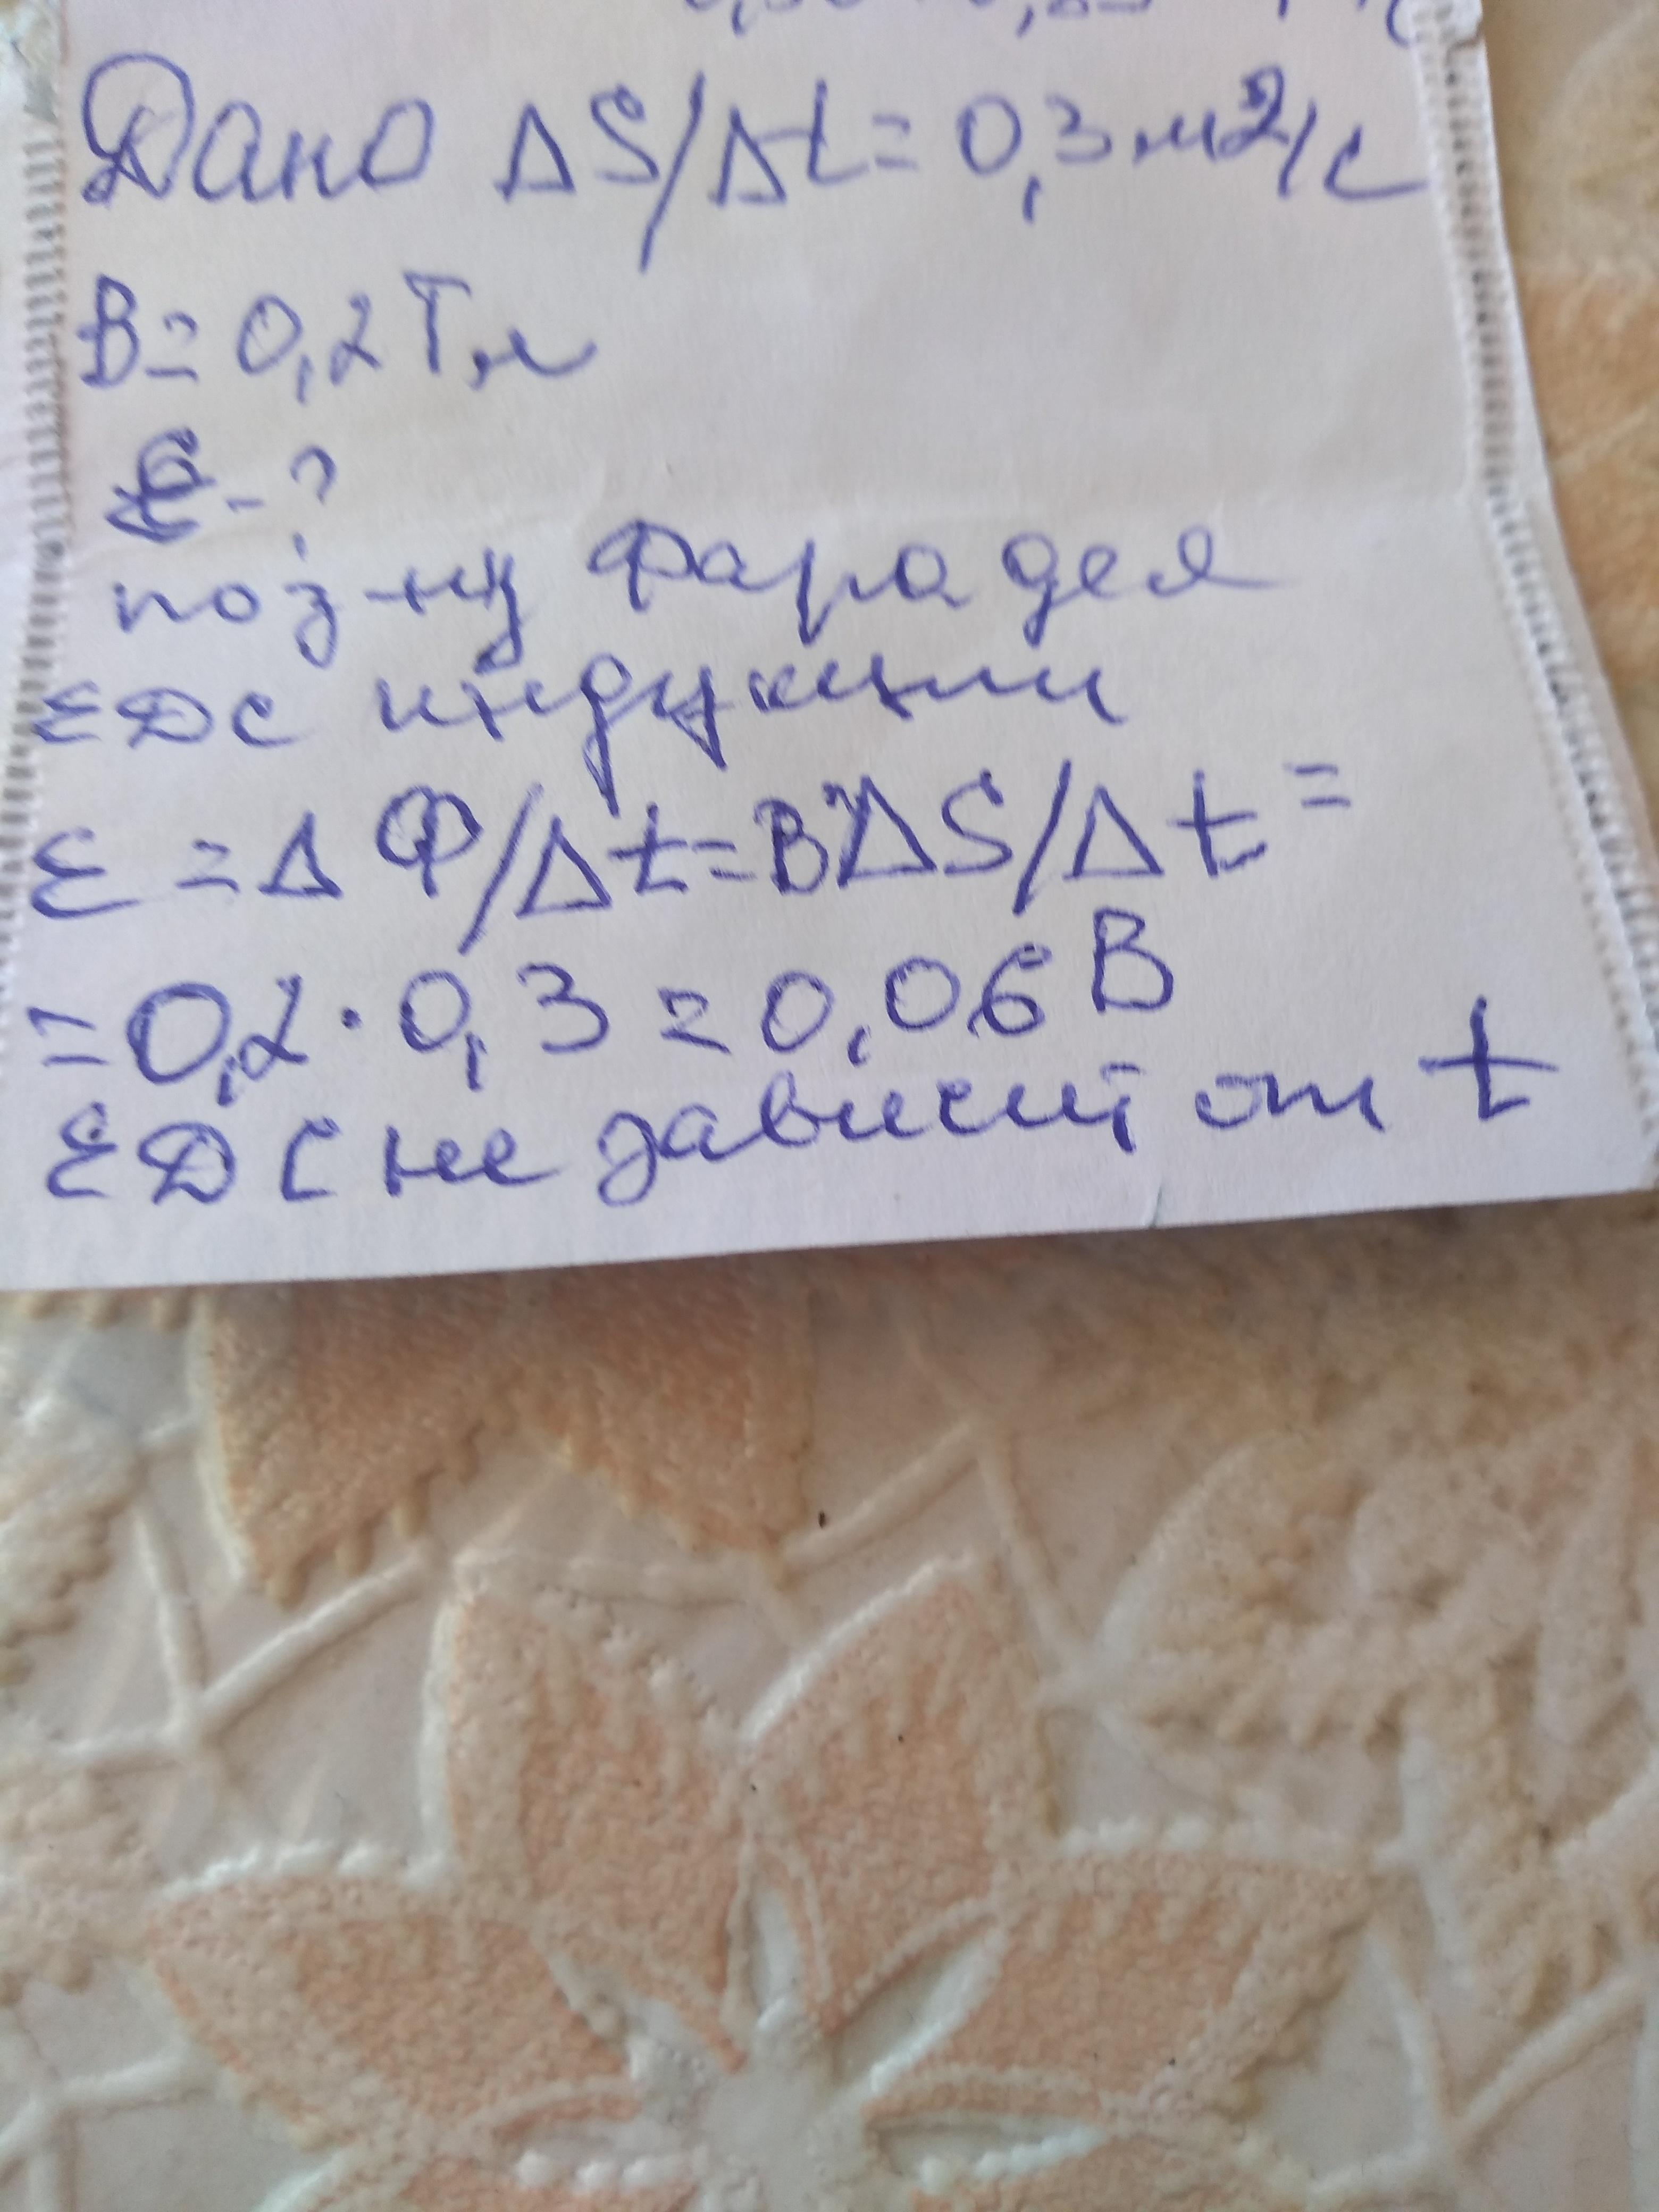 Дано ΔS/Δt = 0,3 м2/с
B = 0,2 Тл
Ɛ - ?
по з-ну Фарадея
ЕДС индукции
Ɛ = ΔФ/Δt = B ΔS/Δt =
= 0,2 · 0,3 = 0,06 В
ЕДС не зависит от t